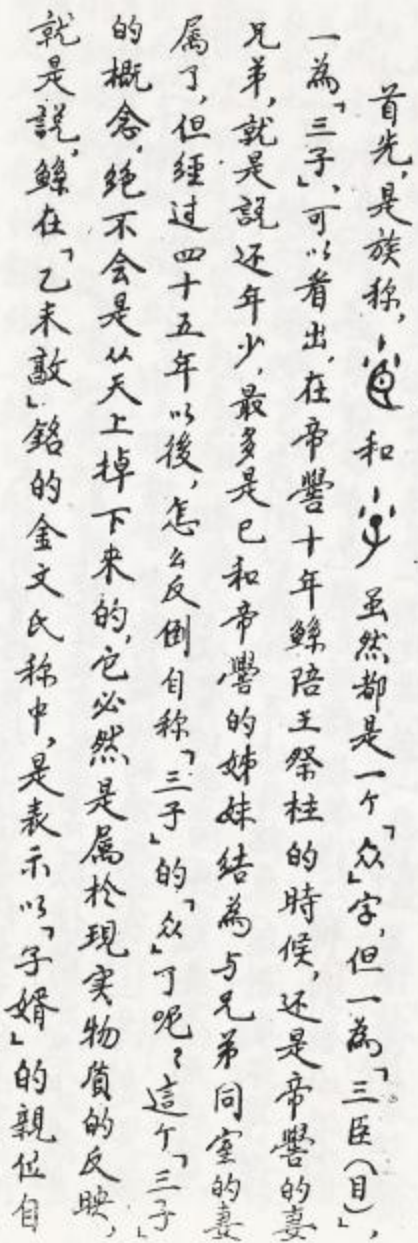 首先,是族称, 和 虽然都是一个「众」字,但一為「三臣(目)」,
一為「三子」,可以看出,在帝嚳十年鲧陪王祭柱的時候,还是帝嚳的妻
兄弟,就是説还年少,最多是已和帝嚳的姊妹结為与兄弟同室的妻
属了,但經过四十五年以後,怎么反倒自称「三子」的「众」了呢?這个「三子」
的概念,绝不会是从天上掉下来的,它必然是属於現实物質的反映,
就是説,鲧在「乙未敵」銘的金文氏称中,是表示以「子婿」的親位自